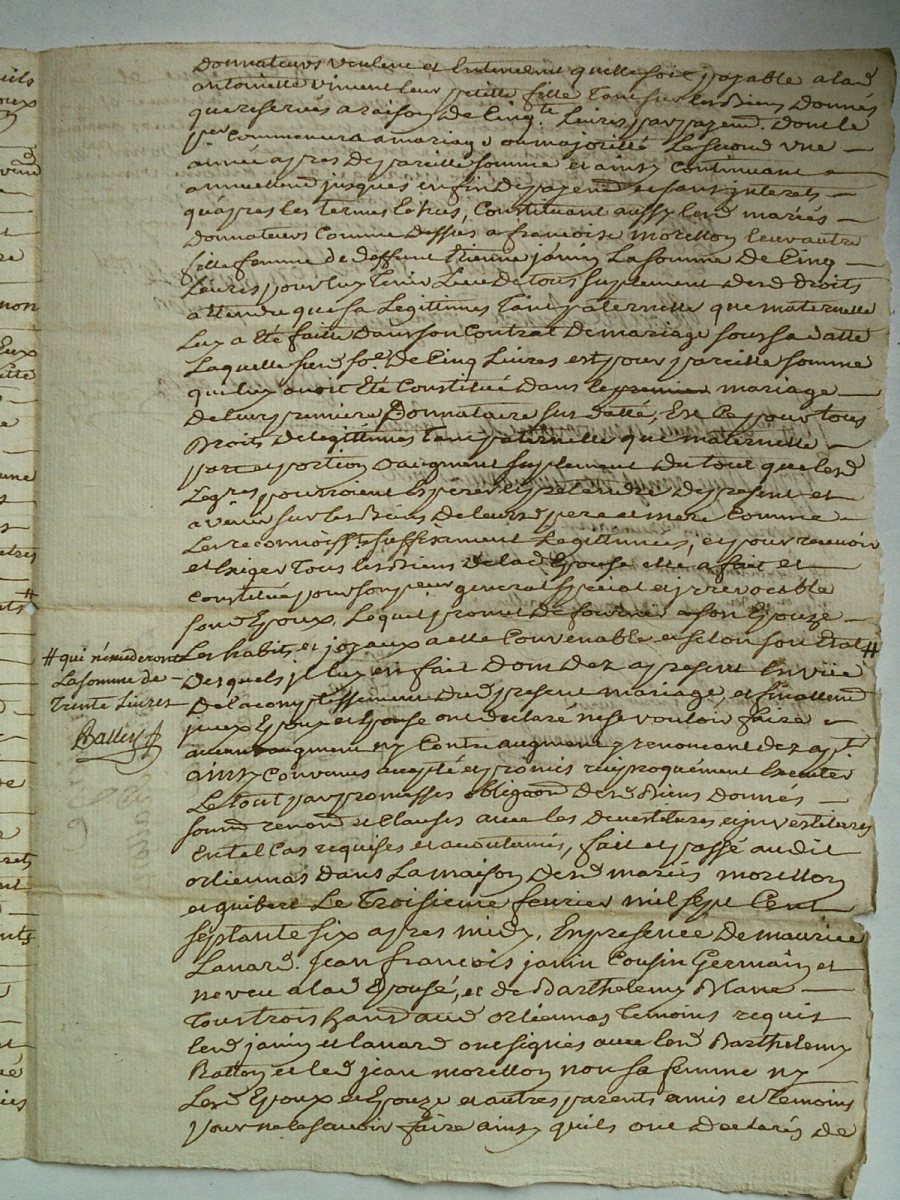 Donnateurs veulent et Entendent quelle soit payable a lad
antoinette vincent leur petite fille Tant sur les Biens Donnés
que reservés a raison De Cinq.te Livres par payend. Dont le
per Commencera a mariage ou majorité Le second une
année apres De pareille somme et ainsy Continuant
annuellemd jusques en fin De payend et sans interets
quapres les termes Echus, Constituant aussy lesd mariés
Donnateurs comme Dessus a francoise morellon leur autre
fille femme de deffunt Etienne janin La somme De Cinq
Livres pour luy Tenir Lieu De tous suplement de ses droits
attendu que sa Legittime Tant paternelle que maternelle
Luy a été faite Dans son Contrat De mariage sous sa datte
Laquelle susd so.e De Cinq Livres est pour pareille somme
qui luy avoit Eté Constitué Dans le premier mariage
De leur premiere Donnataire sus datté, Et Ce pour tous
Droits De legittimes Tant paternelle que maternelle
part et portion Daugment suplement Du tout que lesd
Legres pourroient Esperer et pretendre De present et
avenir sur les Biens De leursd pere et mere Comme
Les reconnoiss.t suffisament Legittimées, et pour recevoir
et Exiger Tous les Biens De lad Epouse elle a fait et
constitué pour son p.eur general special et irrevocable
son d Epoux, Lequel promet De fournir a son Epouze
Les habits et joyaux a elle Convenable et selon son Etat #
# qui n'excederont
La somme de
Trente Livres
Balley
Desquels jl luy en fait Dom Dez apresent En vüe
De lacomplissement Dud present mariage, et finallemd
jceux Epoux et Epouse ont declaré ne se vouloir faire
aucun augment ny Contr augment y renoncant dez apt
ainsy convenus accepté et promis reciproquement Executer
Le tout par promesses obligaon Desd Biens Donnés
soumd renond et Clauses avec les Devestitures et jnvestitures
En tel Cas requises et acoutumés, fait et passé audit
orliennas Dans La maison Desd mariés morellon
et guibert Le Troisieme fevrier mil sept Cent
septante six apres midy, En presence De maurice
Lanard. jean francois janin Cousin Germain et
neveu a lad Epousé, et de Barthelemy Blanc
Tous trois habd aud orliennas Temoins requis
lesd janin et Lanard ont signés avec lesd Barthelemy
Ratton et led jean morellon non sa femme ny
Lesd Epoux et Epouze et autres parents amis et temoins
pour ne le savoir faire ainsy quils ont Declarés de